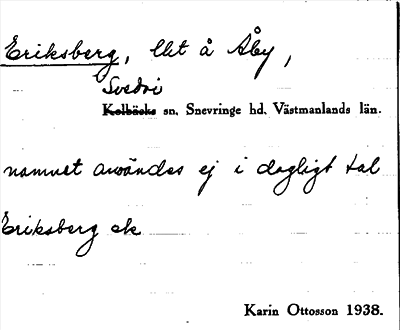 Eriksberg, lht å Åby,
Svedvi
Kolbäcks sn. Snevringe hd. Västmanlands län.
namnet användes ej i dagligt tal
Eriksberg ek
Karin Ottosson 1938.